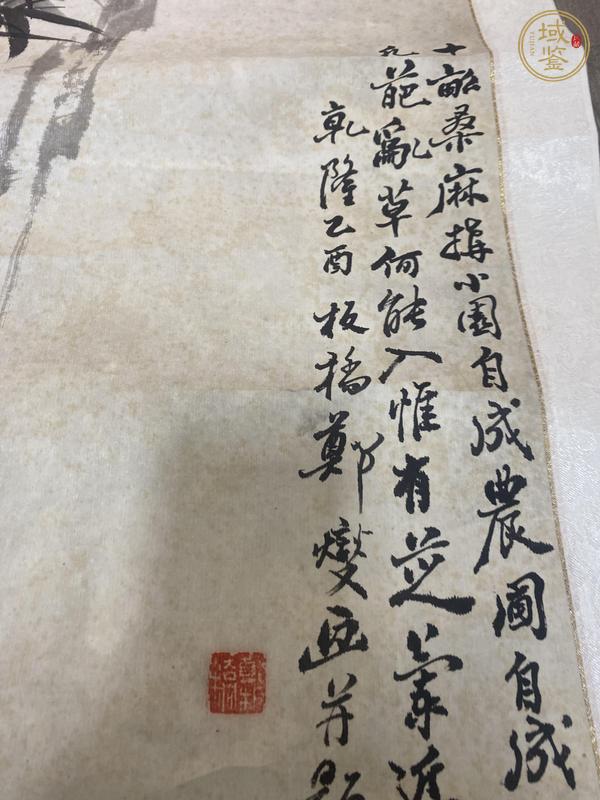 十畝桑麻搆小園自成農圃自成
凡葩亂草何能入惟有芝蘭近
乾隆乙酉板橋鄭燮画并
域鉴